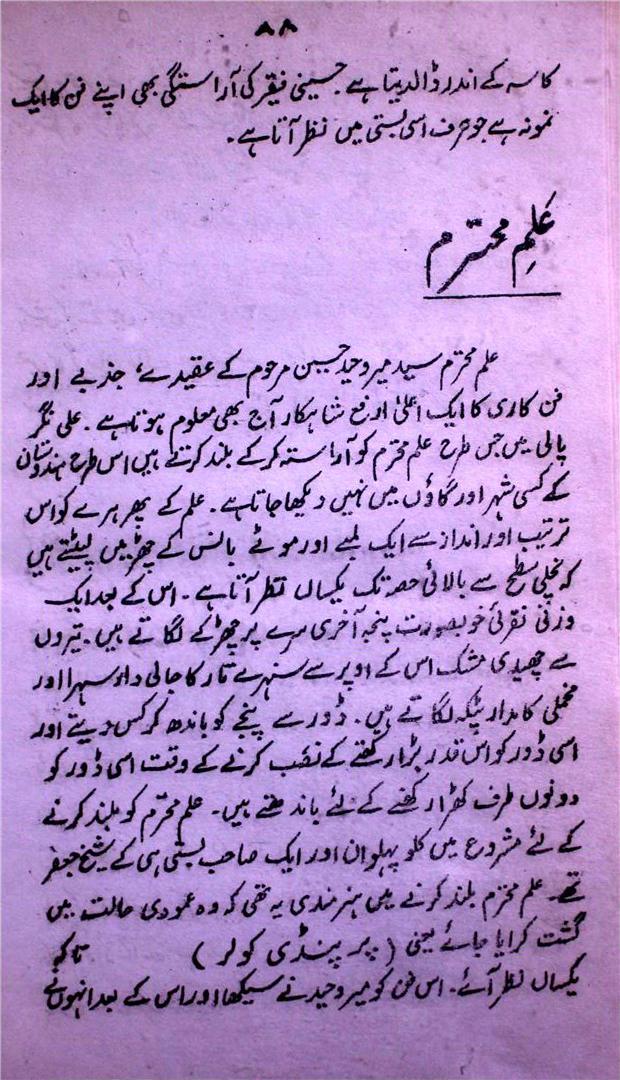 ۸۸
کاسہ کے اندر ڈالدیتا ہے۔ حسینی فیقر کی آراستگی بھی اپنے فن کا ایک
نمونہ ہے جو صرف اسی بستی میں نظر آتا ہے۔
عَلمِ محترم
علم محترم سید میر وحید حسین مرحوم کے عقیدے، جذبے اور
فن کاری کا ایک اعلیٰ ارفع شاہکار آج بھی معلوم ہوتا ہے۔ علی نگر
پالی میں جس طرح علم محترم کو آراستہ کر کے بلند کرتے ہیں اس طرح ہندوستان
کے کسی شہر اور گاؤں میں نہیں دیکھا جاتا ہے۔ علم کے پھرہرے کو اس
ترتیب اور انداز سے ایک لمبے اور موٹے بانس کے چھڑ میں لپیٹتے ہیں
کہ نچلی سطح سے بالائی حصہ تک یکساں نظر آتا ہے۔ اس کے بعد ایک
وزنی نقرئی خوبصورت پنجہ آخری سرے پر چھڑ کے لگاتے ہیں۔ تیروں
سے چھیدی مشک اس کے اوپر سے سنہرے تار کا جالی دار سہرا اور
مخملی کامدار پٹکہ لگاتے ہیں۔ ڈور سے پنجے کو باندھ کر کس دیتے اور
اسی ڈور کو اس قدر بڑا رکھتے کے نصب کرنے کے وقت اسی ڈور کو
دونوں طرف کھڑا رکھنے کے لئے باندھتے ہیں۔ علم محترم کو بلند کرنے
کے لئے شروع میں کلو پہلوان اور ایک صاحب بستی ہی کے شیخ جعفر
تھے۔ علم محترم بلند کرنے میں ہنرمندی یہ تھی کہ وہ عمودی حالت میں
گشت کرایا جائے یعنی (پرپنڈی کولر) تاکہ
یکساں نظر آئے۔ اس فن کو میر وحید نے سیکھا اور اس کے بعد انہوں نے